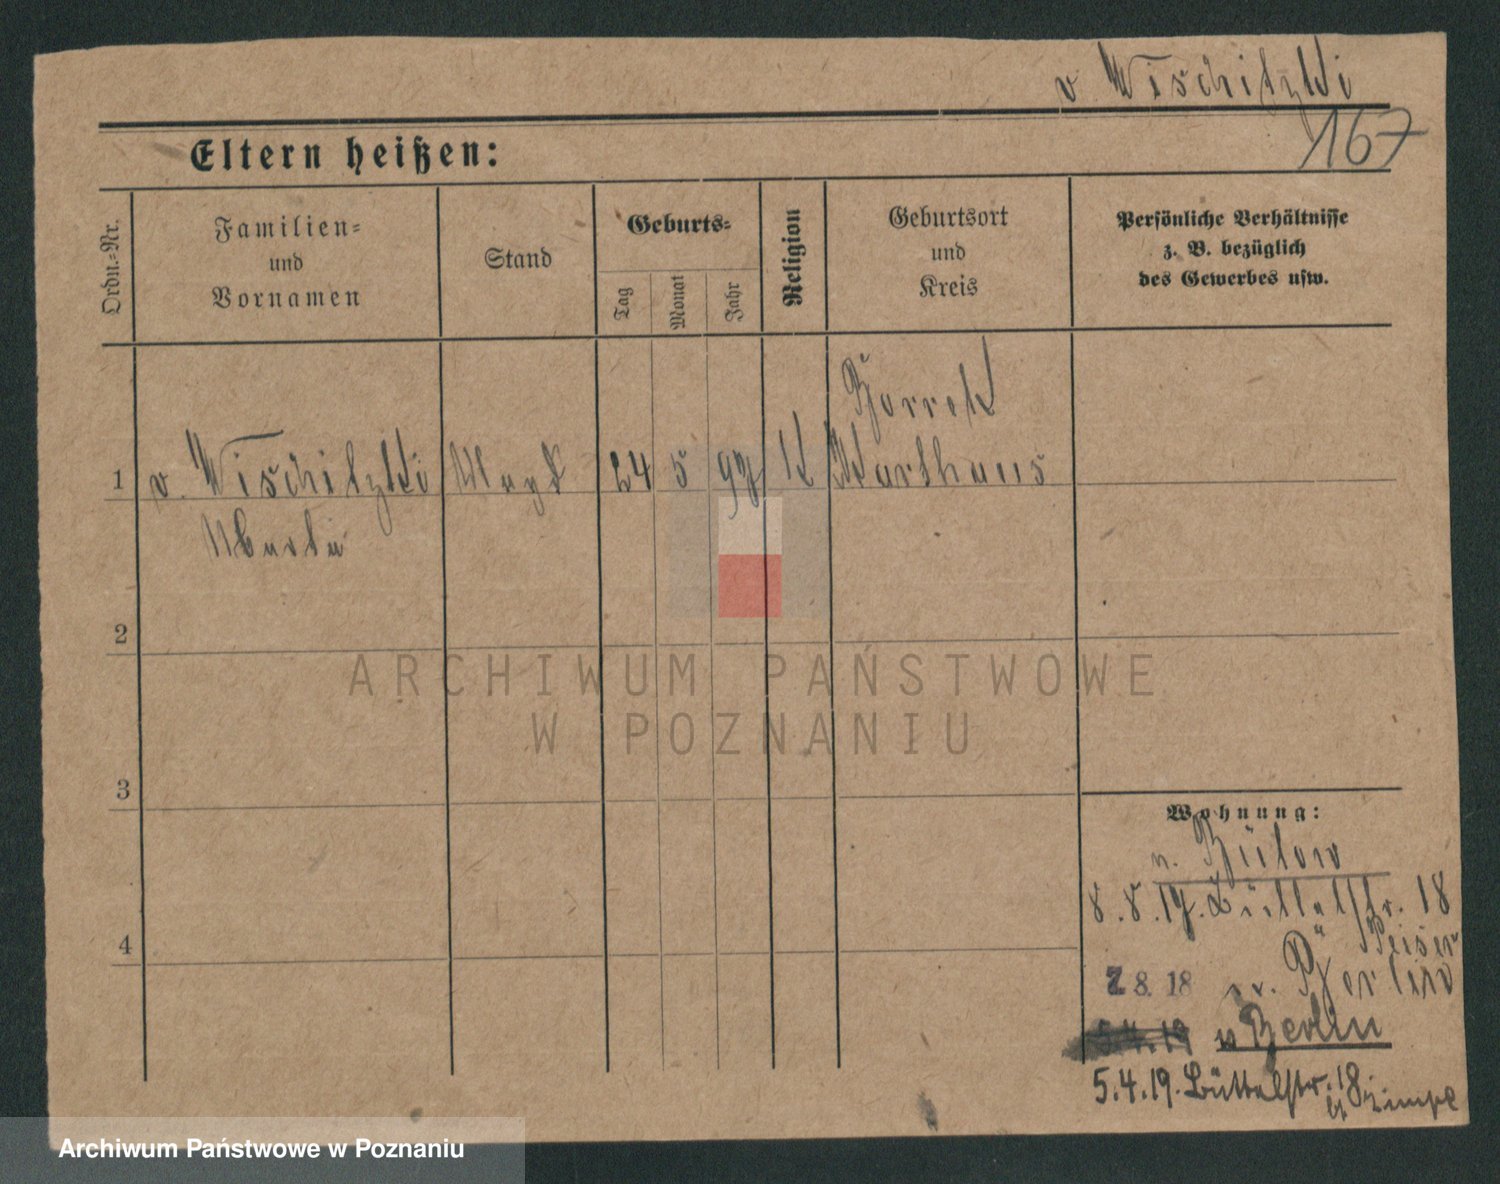 v Wischitzki
167
Eltern heißen:
Ordn.-Nr.
Familien-
und
Vornamen
Stand
Geburts-
Tag
Monat
Jahr
Religion
Geburtsort
und
Kreis
Persönliche Verhältnisse
z. B. bezüglich
des Gewerbes usw.
1
v. Wischitzki
Magd
24
5
97
K
Borrek
Karthaus
2
3
4
Wohnung:
n. Bülow
8.8.17. Büttelstr. 18
Peiser
7. 8. 18 v. Berlin
5.4.19 n Berlin
5.4.19. Büttelstr. 18
ARCHIWUM PAŃSTWOWE
W POZNANIU
Archiwum Państwowe w Poznaniu